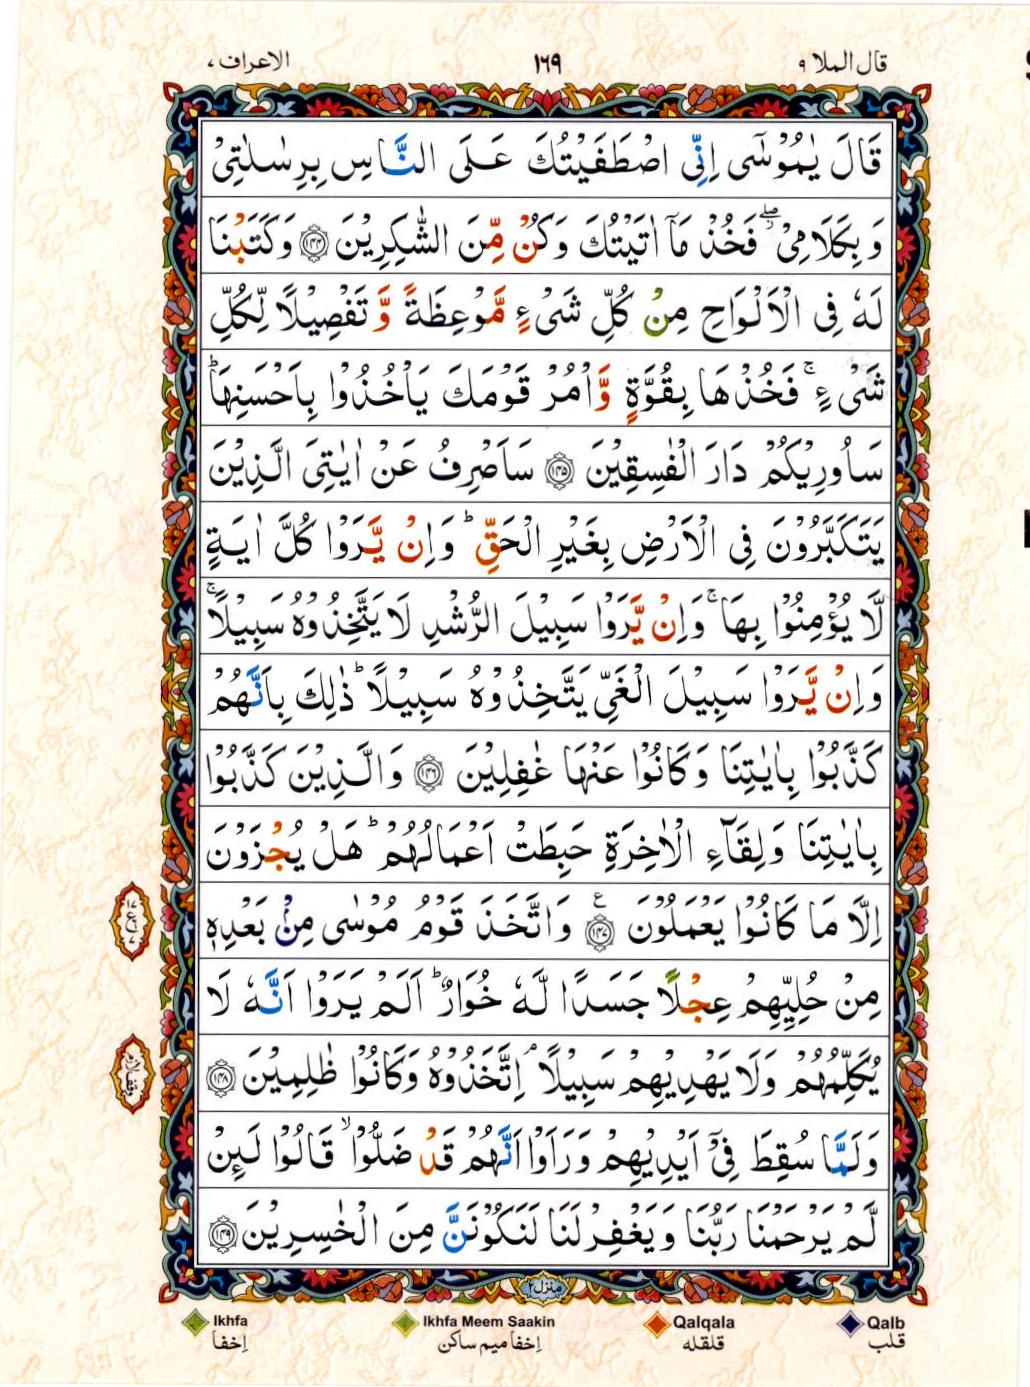 قال الملا ٩
١٦٩
الاعراف ٧
قَالَ يٰمُوْسٰۤى اِنِّى اصْطَفَيْتُكَ عَلَى النَّاسِ بِرِسٰلٰتِىْ
وَ بِكَلَامِىْ ۖ فَخُذْ مَاۤ اٰتَيْتُكَ وَكُنْ مِّنَ الشّٰكِرِيْنَ ۝١٤٤ وَكَتَبْنَا
لَهٗ فِى الْاَلْوَاحِ مِنْ كُلِّ شَىْءٍ مَّوْعِظَةً وَّ تَفْصِيْلًا لِّكُلِّ
شَىْءٍ ۚ فَخُذْهَا بِقُوَّةٍ وَّاْمُرْ قَوْمَكَ يَاْخُذُوْا بِاَحْسَنِهَا ؕ
سَاُورِيْكُمْ دَارَ الْفٰسِقِيْنَ ۝١٤٥ سَاَصْرِفُ عَنْ اٰيٰتِىَ الَّذِيْنَ
يَتَكَبَّرُوْنَ فِى الْاَرْضِ بِغَيْرِ الْحَقِّ ؕ وَاِنْ يَّرَوْا كُلَّ اٰيَةٍ
لَّا يُؤْمِنُوْا بِهَا ۚ وَاِنْ يَّرَوْا سَبِيْلَ الرُّشْدِ لَا يَتَّخِذُوْهُ سَبِيْلًا ۚ
وَاِنْ يَّرَوْا سَبِيْلَ الْغَىِّ يَتَّخِذُوْهُ سَبِيْلًا ؕ ذٰلِكَ بِاَنَّهُمْ
كَذَّبُوْا بِاٰيٰتِنَا وَكَانُوْا عَنْهَا غٰفِلِيْنَ ۝١٤٦ وَالَّذِيْنَ كَذَّبُوْا
بِاٰيٰتِنَا وَلِقَآءِ الْاٰخِرَةِ حَبِطَتْ اَعْمَالُهُمْ ؕ هَلْ يُجْزَوْنَ
اِلَّا مَا كَانُوْا يَعْمَلُوْنَ ۝١٤٧ ع وَاتَّخَذَ قَوْمُ مُوْسٰى مِنْۢ بَعْدِهٖ
مِنْ حُلِيِّهِمْ عِجْلًا جَسَدًا لَّهٗ خُوَارٌ ؕ اَلَمْ يَرَوْا اَنَّهٗ لَا
يُكَلِّمُهُمْ وَلَا يَهْدِيْهِمْ سَبِيْلًا ۘ اِتَّخَذُوْهُ وَكَانُوْا ظٰلِمِيْنَ ۝١٤٨
وَلَمَّا سُقِطَ فِىْۤ اَيْدِيْهِمْ وَرَاَوْا اَنَّهُمْ قَدْ ضَلُّوْا ۙ قَالُوْا لَئِنْ
لَّمْ يَرْحَمْنَا رَبُّنَا وَيَغْفِرْ لَنَا لَنَكُوْنَنَّ مِنَ الْخٰسِرِيْنَ ۝١٤٩
وقف لازم
منزل ٢
Ikhfa
Ikhfa Meem Saakin
Qalqala
Qalb
اِخفا
اِخفا میم ساکن
قلقله
قلب